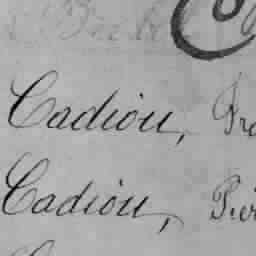 C
Cadiou, Fra
Cadiou, Pier